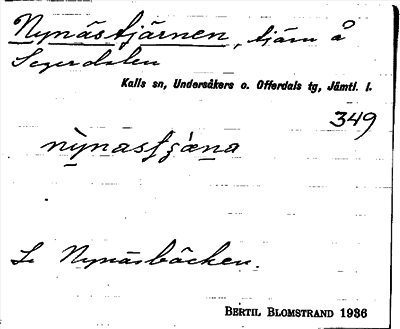 Nynästjärnen, tjärn å
Segerdalen
Kalls sn, Undersåkers o. Offerdals tg, Jämtl. l.
349
nỳnastʒ̀æna
Se Nynäsbäcken.
BERTIL BLOMSTRAND 1936